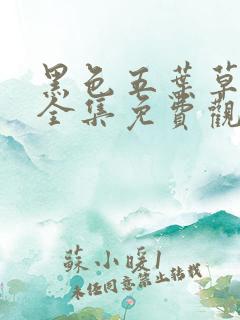 黑色五葉草
全集免費觀
蘇小暖1
未经同意禁止转载